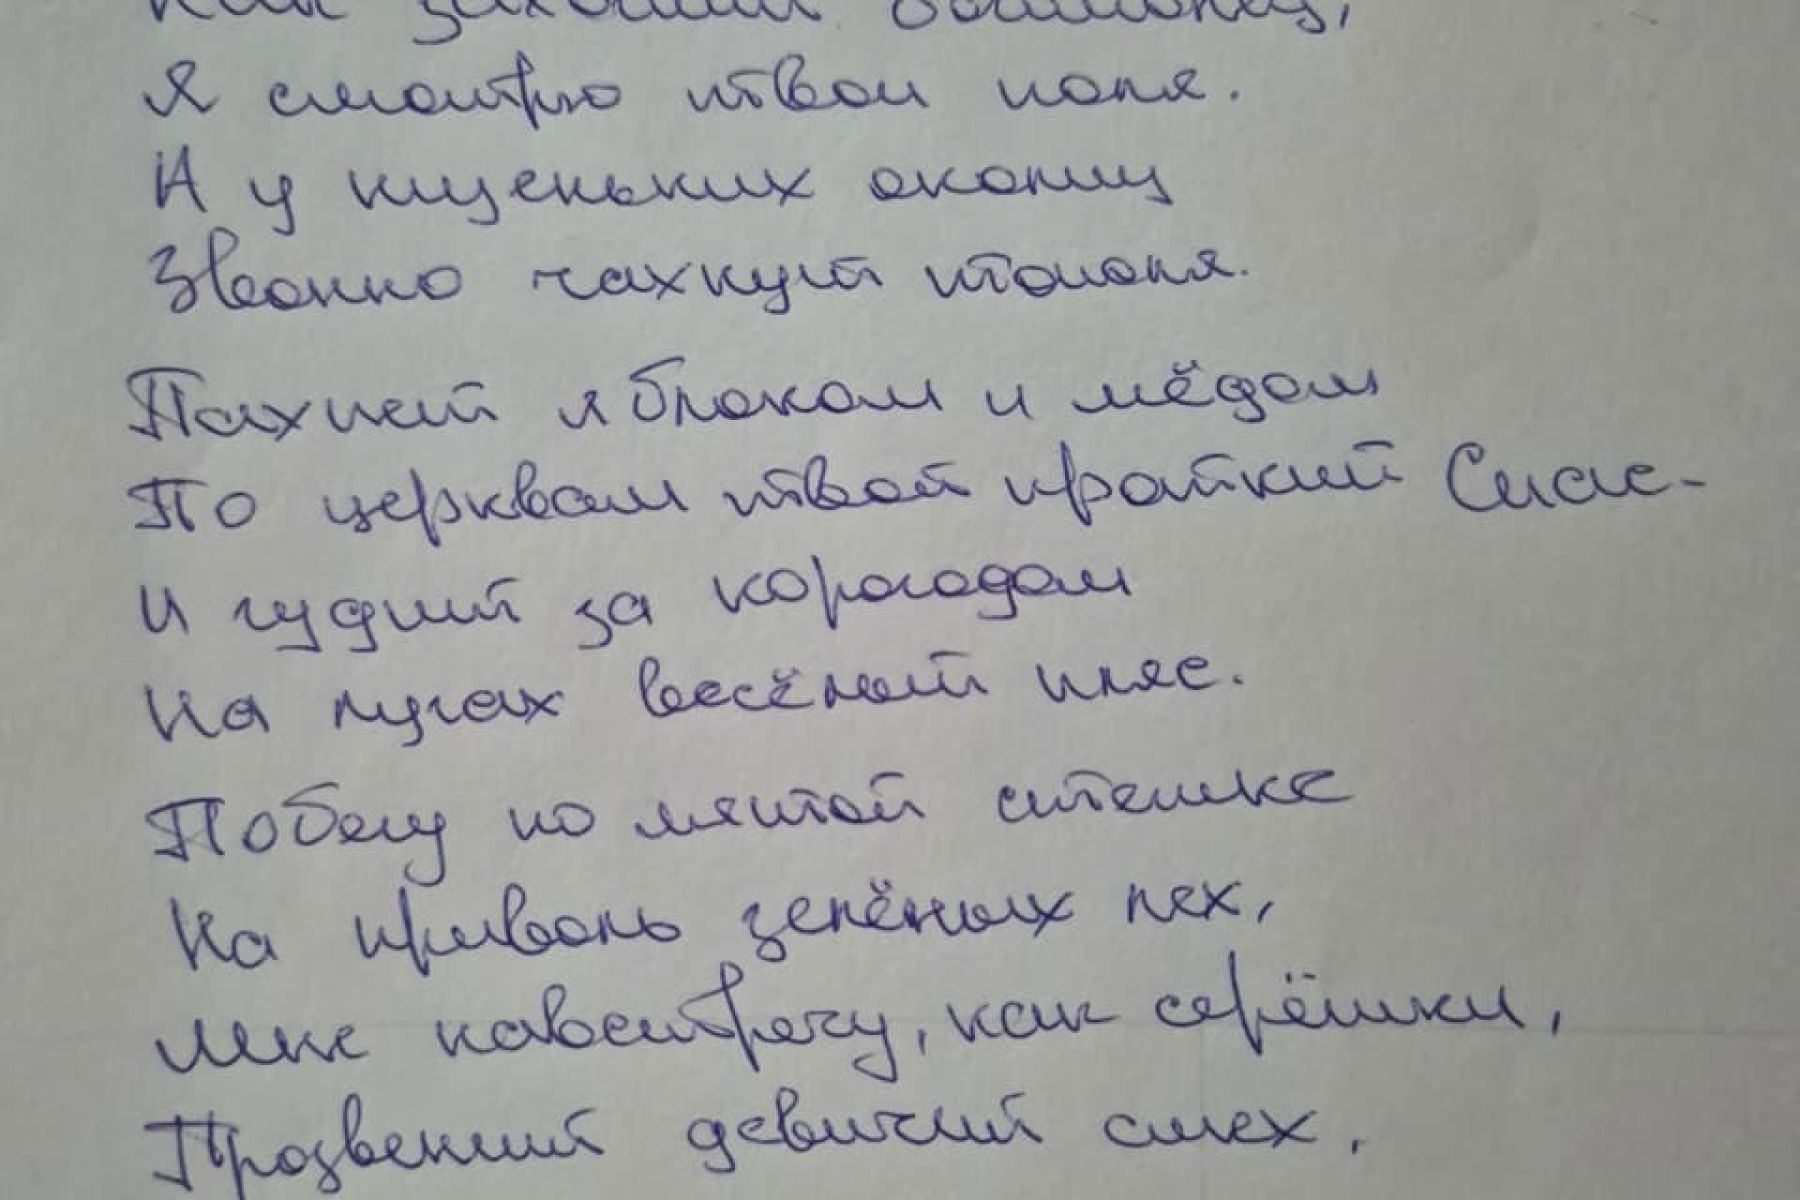 Как захожий богомолец,
Я смотрю твои поля.
А у низеньких околиц
Звонно чахнут тополя.
Пахнет яблоком и мёдом
По церквам твой кроткий Спас-
И гудит за корогодом
На лугах весёлый пляс.
Побегу по мятой стежке
На приволь зелёных лех,
Мне навстречу, как серёжки,
Прозвенит девичий смех.